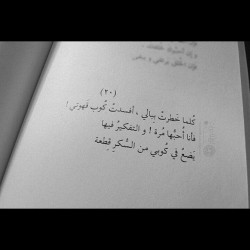 (٢٠)
كُلما خَطرتْ ببالي ، أفسدتْ كُوب قهوتي !
فأنا أُحبُّها مُرة ! و التفكيرُ فيها
يَضعُ في كُوبي من السُّكرِ قِطعة